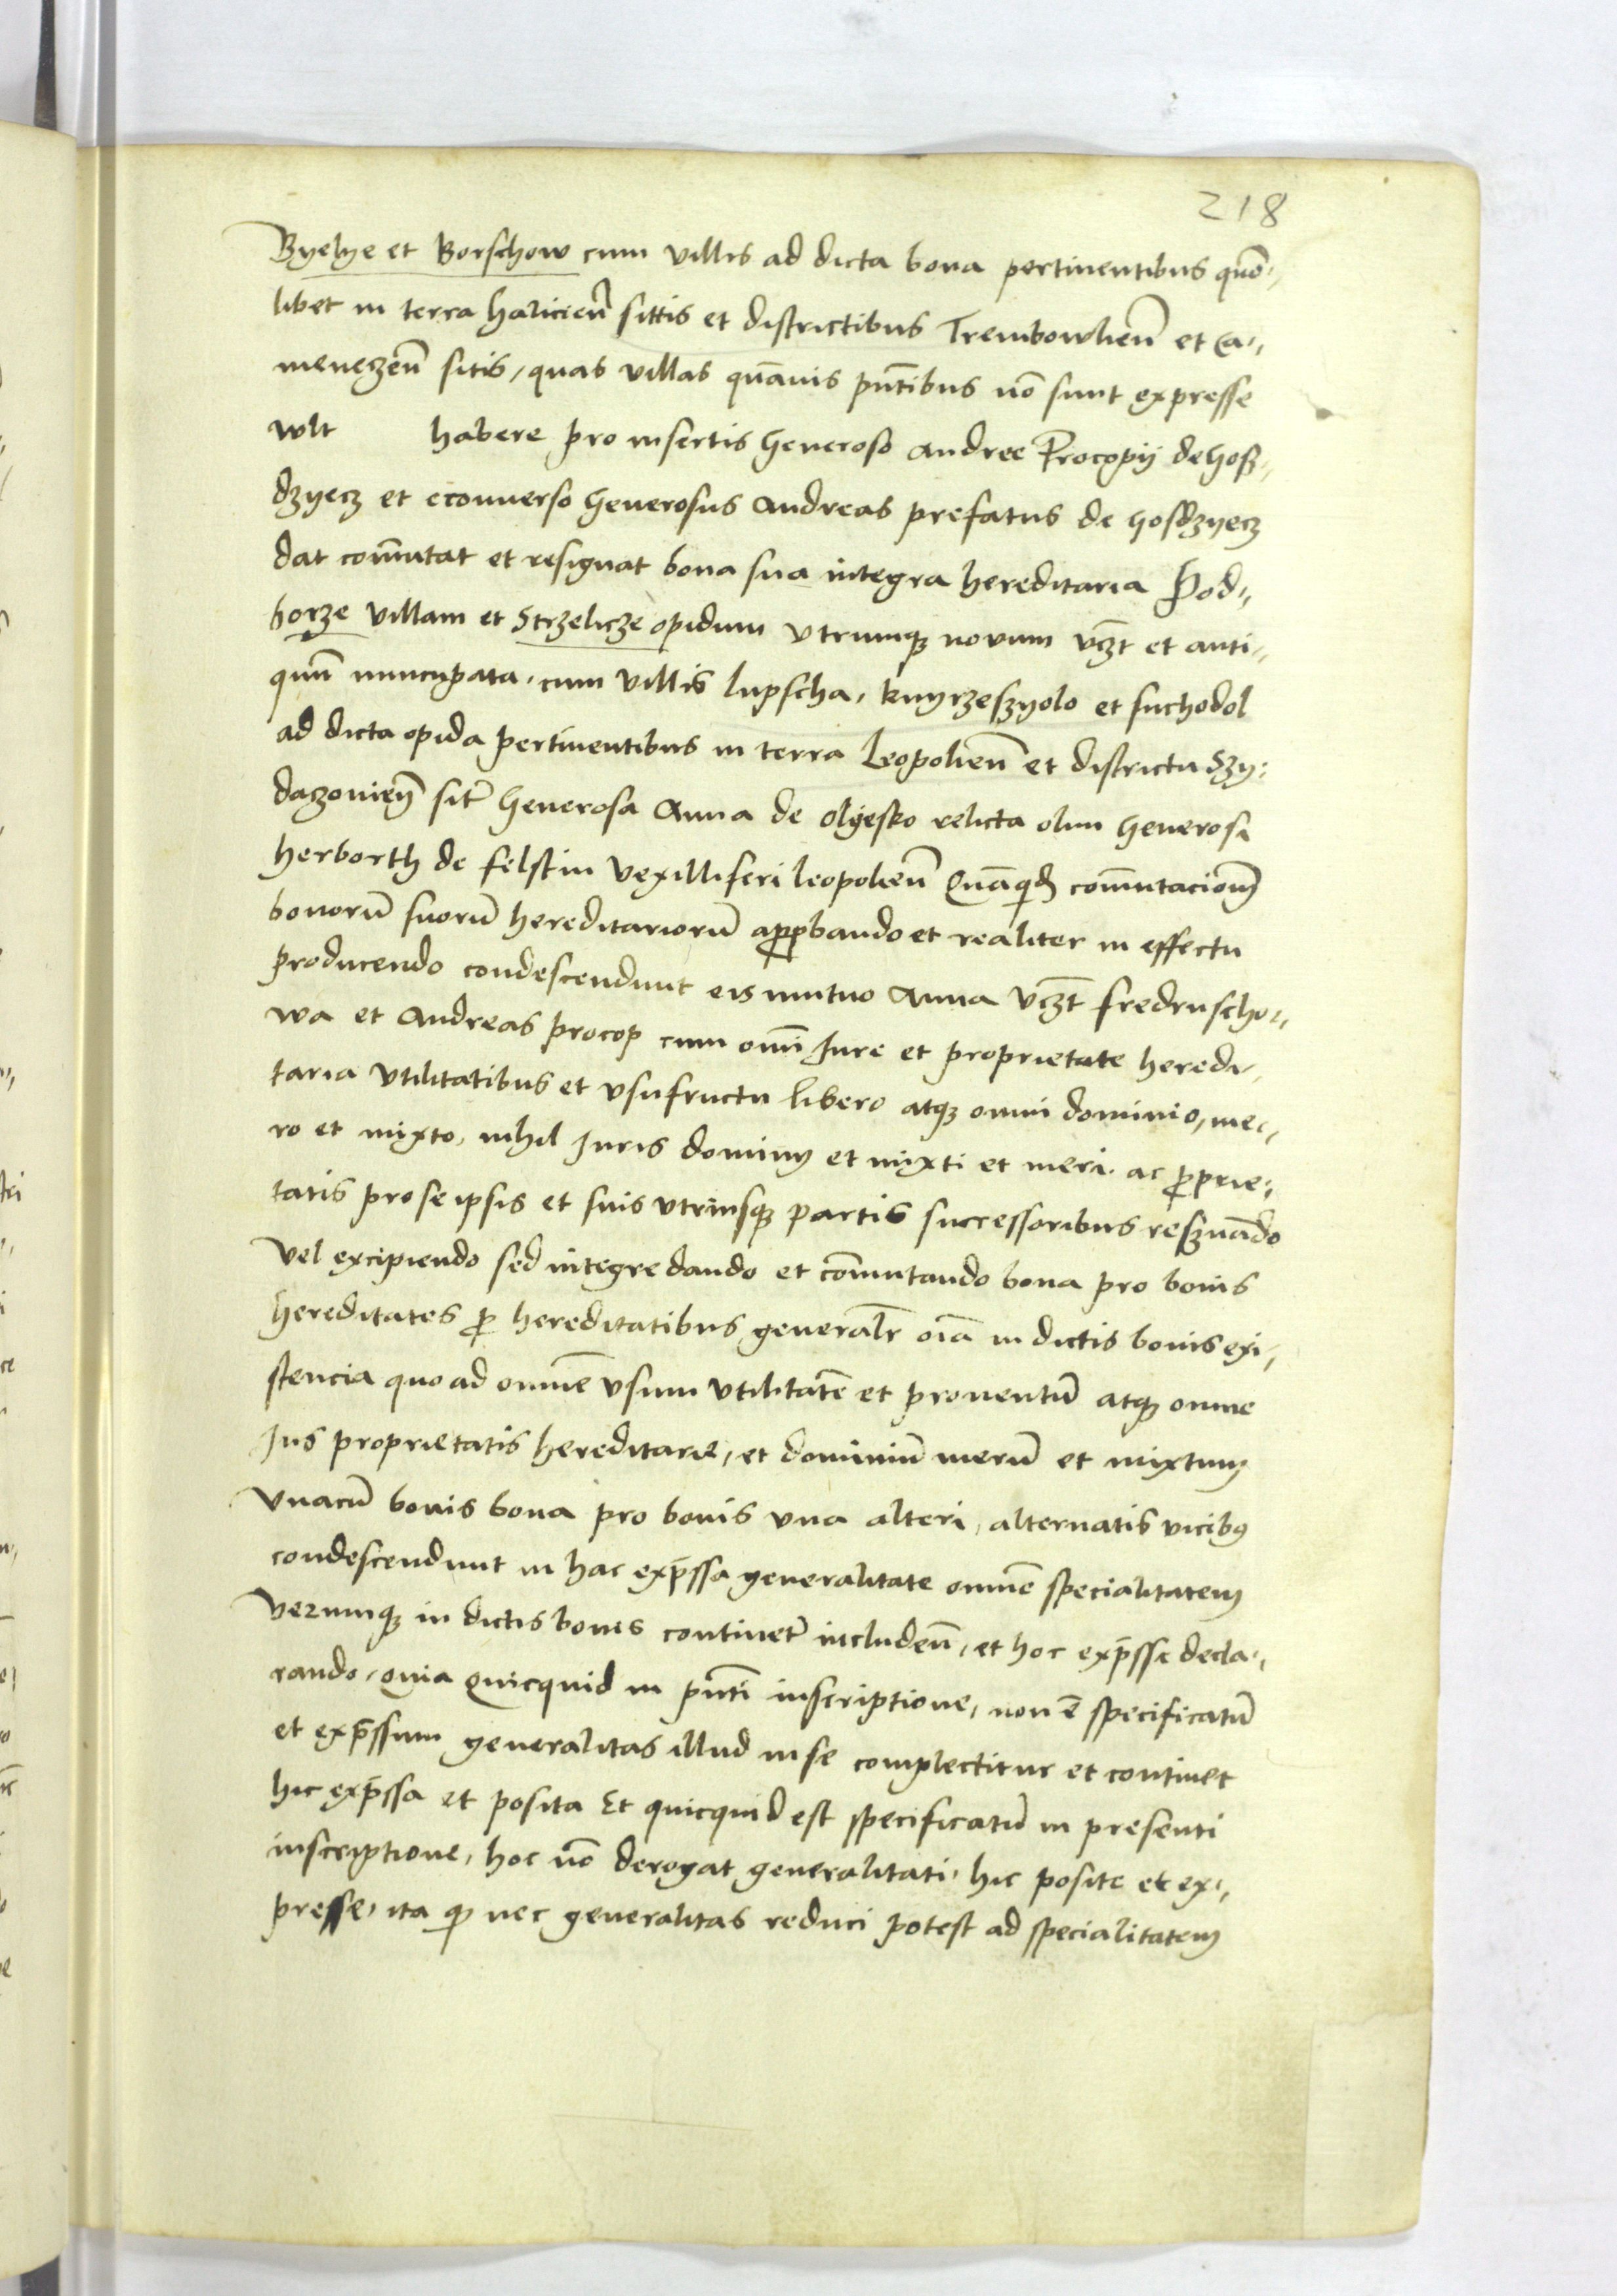 218
Byelye et Borschow cum villis ad dicta bona pertinentibus quo,,
libet in terra haliciен̃ sittis et districtibus Trembowlien̄ et Ca,,
meneczen̄ sitis, quas villas quāuis pn̄tibus nō sunt expresse
wlt habere pro insertis Generoso Andree Procopij de hosz,,
dzyecz et econuerso Generosus Andreas prefatus de hosdzyecz
dat cōmutat et resignat bona sua integra hereditaria Pod,,
horze villam et Strzelicze opidum vtrumqz novum vczt et anti,,
quū nuncupata, cum villis lupscha, knyrzeszyolo et suchodol
ad dicta opida pertinentibus in terra Leopolien̄ et districtu Szy,,
daczouien̄ sit̄ Generosa Anna de olyesko relicta olim Generosi
herborth de felstin vexilliferi leopolien̄ Quāqd̄ cōmutacionē
bonorū suorū hereditariorū appbando et realiter in effectu
producendo condescendunt eis mutuo Anna vczt fredruscho,,
wa et Andreas procop cum omī Iure et proprietate heredi,,
taria vtilitatibus et vsufructu libero atqz omni dominio, me,,
ro et mixto, nihil Iuris dominij et mixti et meri ac proprie,,
tatis pro se ipsis et suis vtriusqz partis successoribus reseruādo
vel excipiendo sed integre dando et cōmutando bona pro bonis
hereditates p hereditatibus generalr̄ oīa in dictis bonis exi,,
stencia quo ad omnē vsum vtilitatē et prouentū atqz omne
Ius proprietatis hereditarie, et dominiū merū et mixtum
vnacū bonis bona pro bonis vna alteri, alternatis vicibus
condescendunt in hac exp̄ssa generalitate omnē specialitatem
vtrumqz in dictis bonis continet̄ includen̄, et hoc exp̄sse decla,,
rando, quia quicquid in pn̄ti inscriptione, non ē specificatū
et exp̄ssum generalitas illud in se complectitur et continet
hic exp̄ssa et posita Et quicquid est specificatū in presenti
inscriptione, hoc nō derogat generalitati, hic posite et ex,,
presse, ita qp nec generalitas reduci potest ad specialitatem